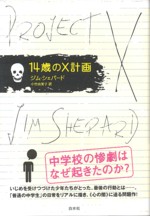 PROJECT X
14歳のX計画
ジム・シェパード
小竹由美子 訳
JIM SHEPARD
中学校の惨劇は
なぜ起きたのか?
いじめを受けつづけた少年たちがとった、最後の行動とは――。
「普通の中学生」の日常をリアルに描き、《心の闇》に迫る問題作!
白水社